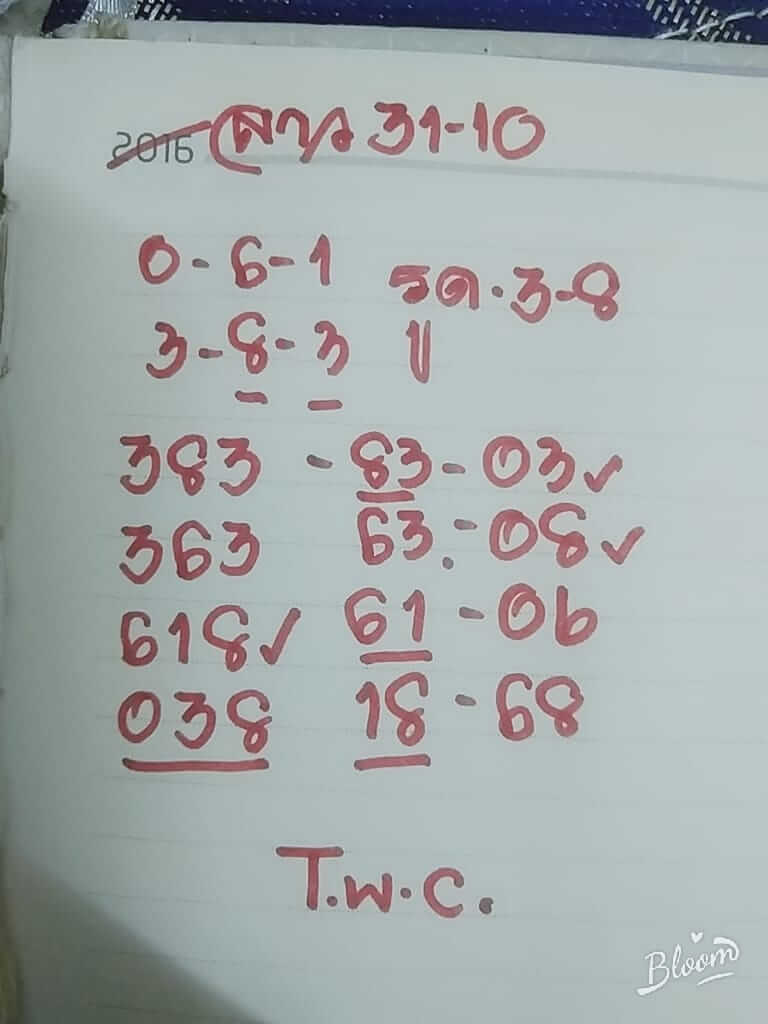 2016 ลาว 31-10
0-6-1 รด.3-8
3-8-3 บ
383 - 83 - 03✓
363 63.- 08✓
618✓ 61 - 06
038 18 - 68
T.W.C.
Bloom